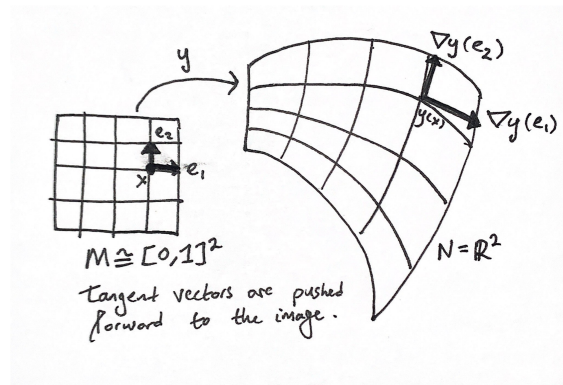 y
∇y(e₂)
e₂
x
e₁
y(x)
∇y(e₁)
M≅[0,1]²
N=ℝ²
Tangent vectors are pushed
forward to the image.